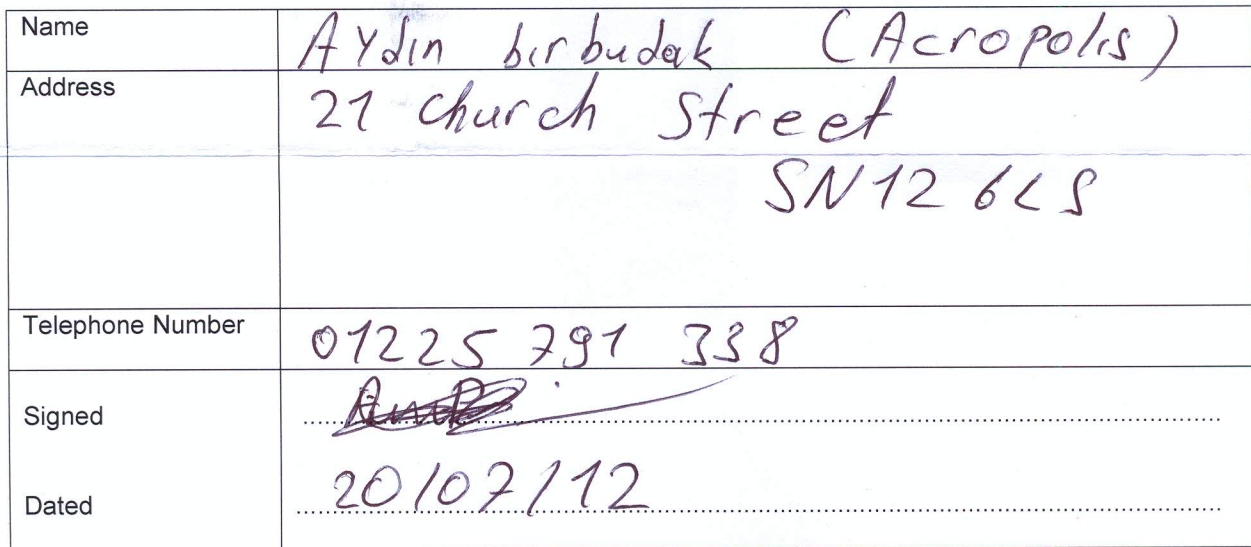 Name Aydin birbudak (Acropolis)
Address 21 church Street
SN12 6LS
Telephone Number 01225 791 338
Signed
Dated 20/07/12